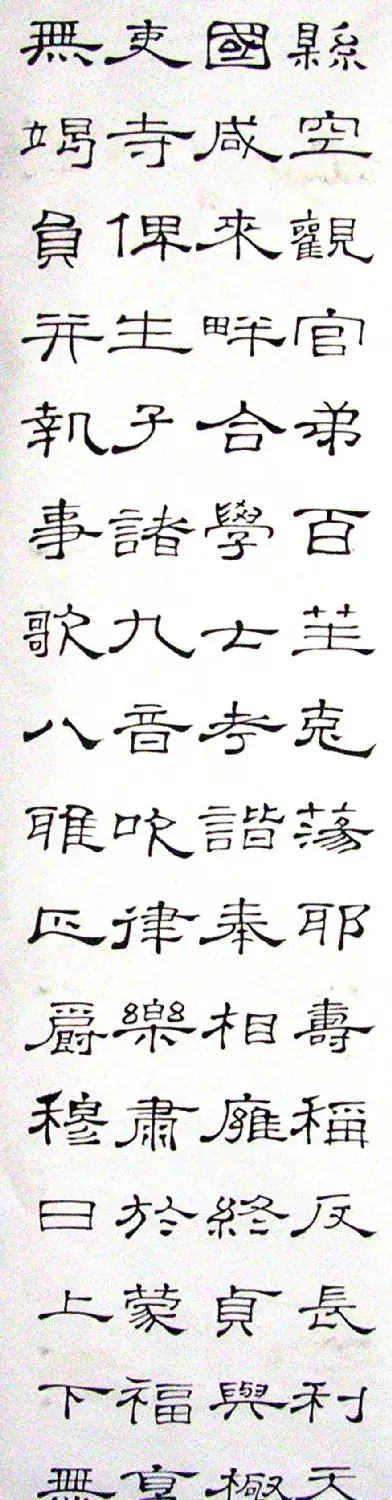 縣空觀官弟百苼克蕩耶壽稱反長利天
國咸來畔合學士考諧奉相廱終貞與極
吏寺俾生子諸九音吹律樂肅於蒙福享
無竭負并執事歌八雅正爵穆日上下無